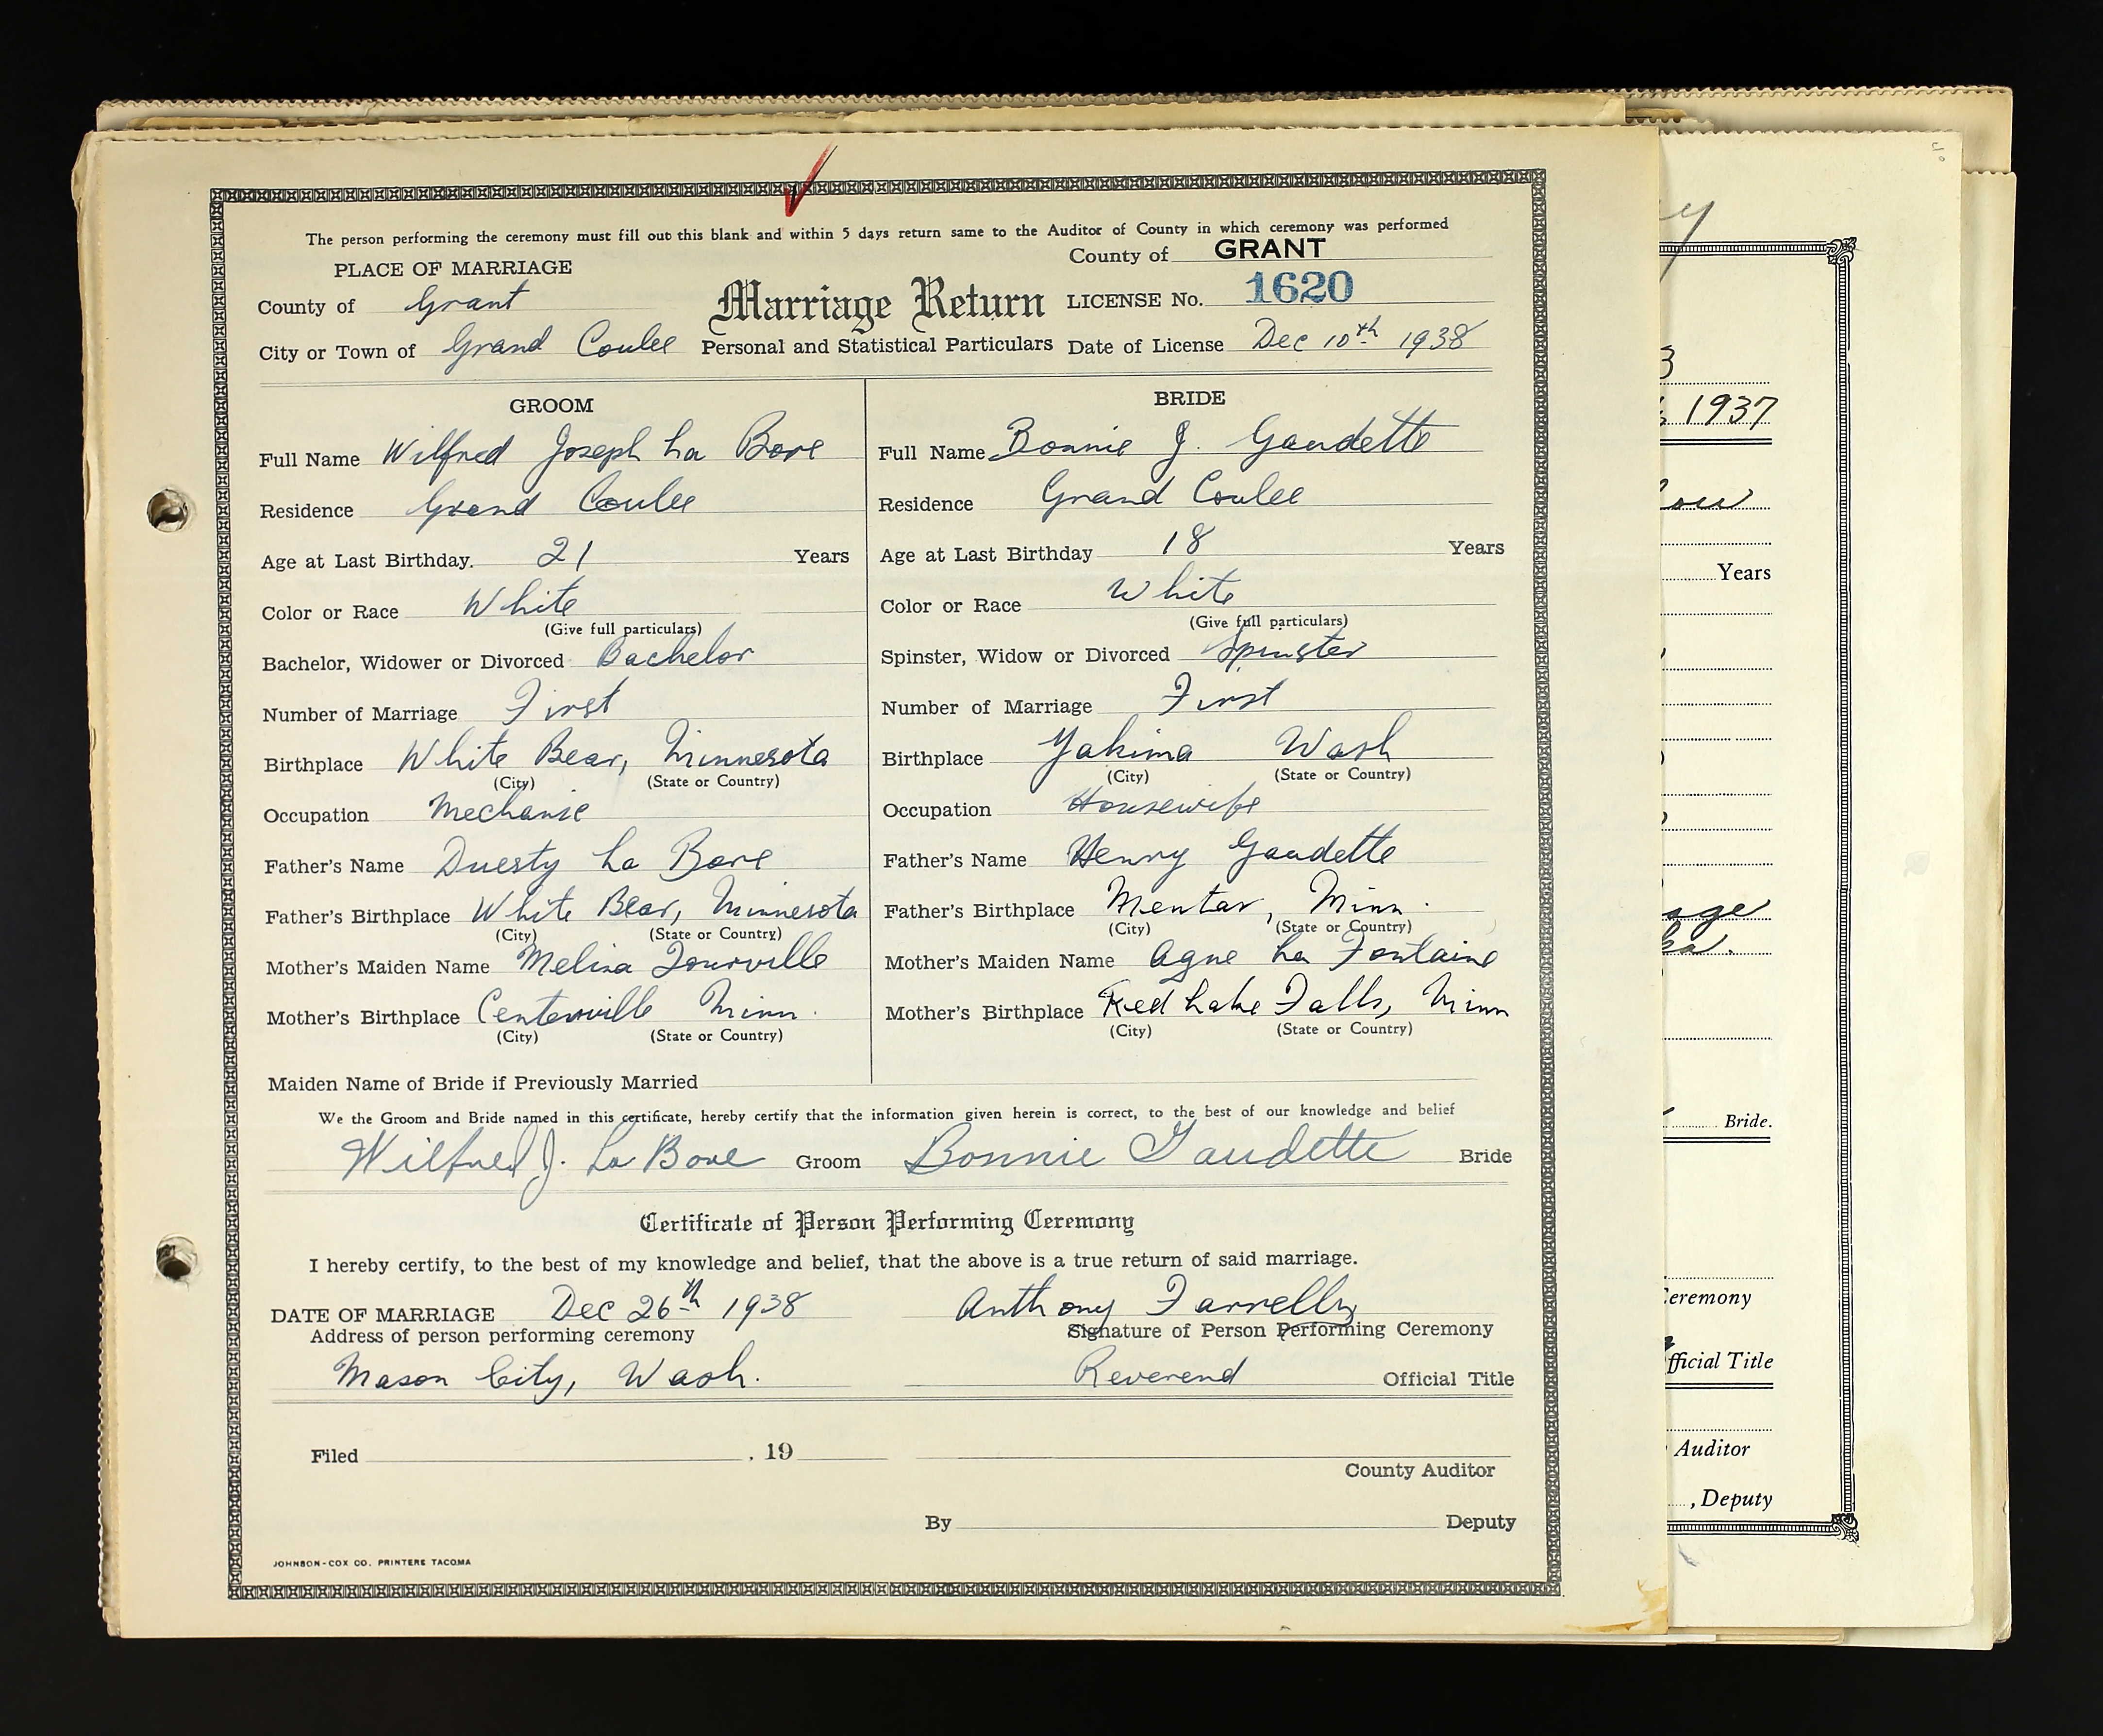 The person performing the ceremony must fill out this blank and within 5 days return same to the Auditor of County in which ceremony was performed
PLACE OF MARRIAGE
County of GRANT
County of Grant
Marriage Return
LICENSE No. 1620
City or Town of Grand Coulee
Personal and Statistical Particulars
Date of License Dec 10th 1938
GROOM
Full Name Wilfred Joseph La Bore
Residence Grand Coulee
Age at Last Birthday. 21 Years
Color or Race White
(Give full particulars)
Bachelor, Widower or Divorced Bachelor
Number of Marriage First
Birthplace White Bear, Minnesota
(City) (State or Country)
Occupation Mechanic
Father's Name Duesty La Bore
Father's Birthplace White Bear, Minnesota
(City) (State or Country)
Mother's Maiden Name Melina Tourville
Mother's Birthplace Centerville Minn.
(City) (State or Country)
BRIDE
Full Name Bonnie J. Gaudette
Residence Grand Coulee
Age at Last Birthday 18 Years
Color or Race White
(Give full particulars)
Spinster, Widow or Divorced Spinster
Number of Marriage First
Birthplace Yakima Wash
(City) (State or Country)
Occupation Housewife
Father's Name Henry Gaudette
Father's Birthplace Mentor, Minn.
(City) (State or Country)
Mother's Maiden Name Agne La Fontaine
Mother's Birthplace Red Lake Falls, Minn
(City) (State or Country)
Maiden Name of Bride if Previously Married
We the Groom and Bride named in this certificate, hereby certify that the information given herein is correct, to the best of our knowledge and belief
Wilfred J. La Bore Groom Bonnie Gaudette Bride
Certificate of Person Performing Ceremony
I hereby certify, to the best of my knowledge and belief, that the above is a true return of said marriage.
DATE OF MARRIAGE Dec 26th 1938 Anthony Farrelly
Address of person performing ceremony Signature of Person Performing Ceremony
Mason City, Wash. Reverend Official Title
Filed , 19
County Auditor
By Deputy
JOHNSON-COX CO. PRINTERS TACOMA
1937
Years
Bride.
Ceremony
Official Title
Auditor
, Deputy